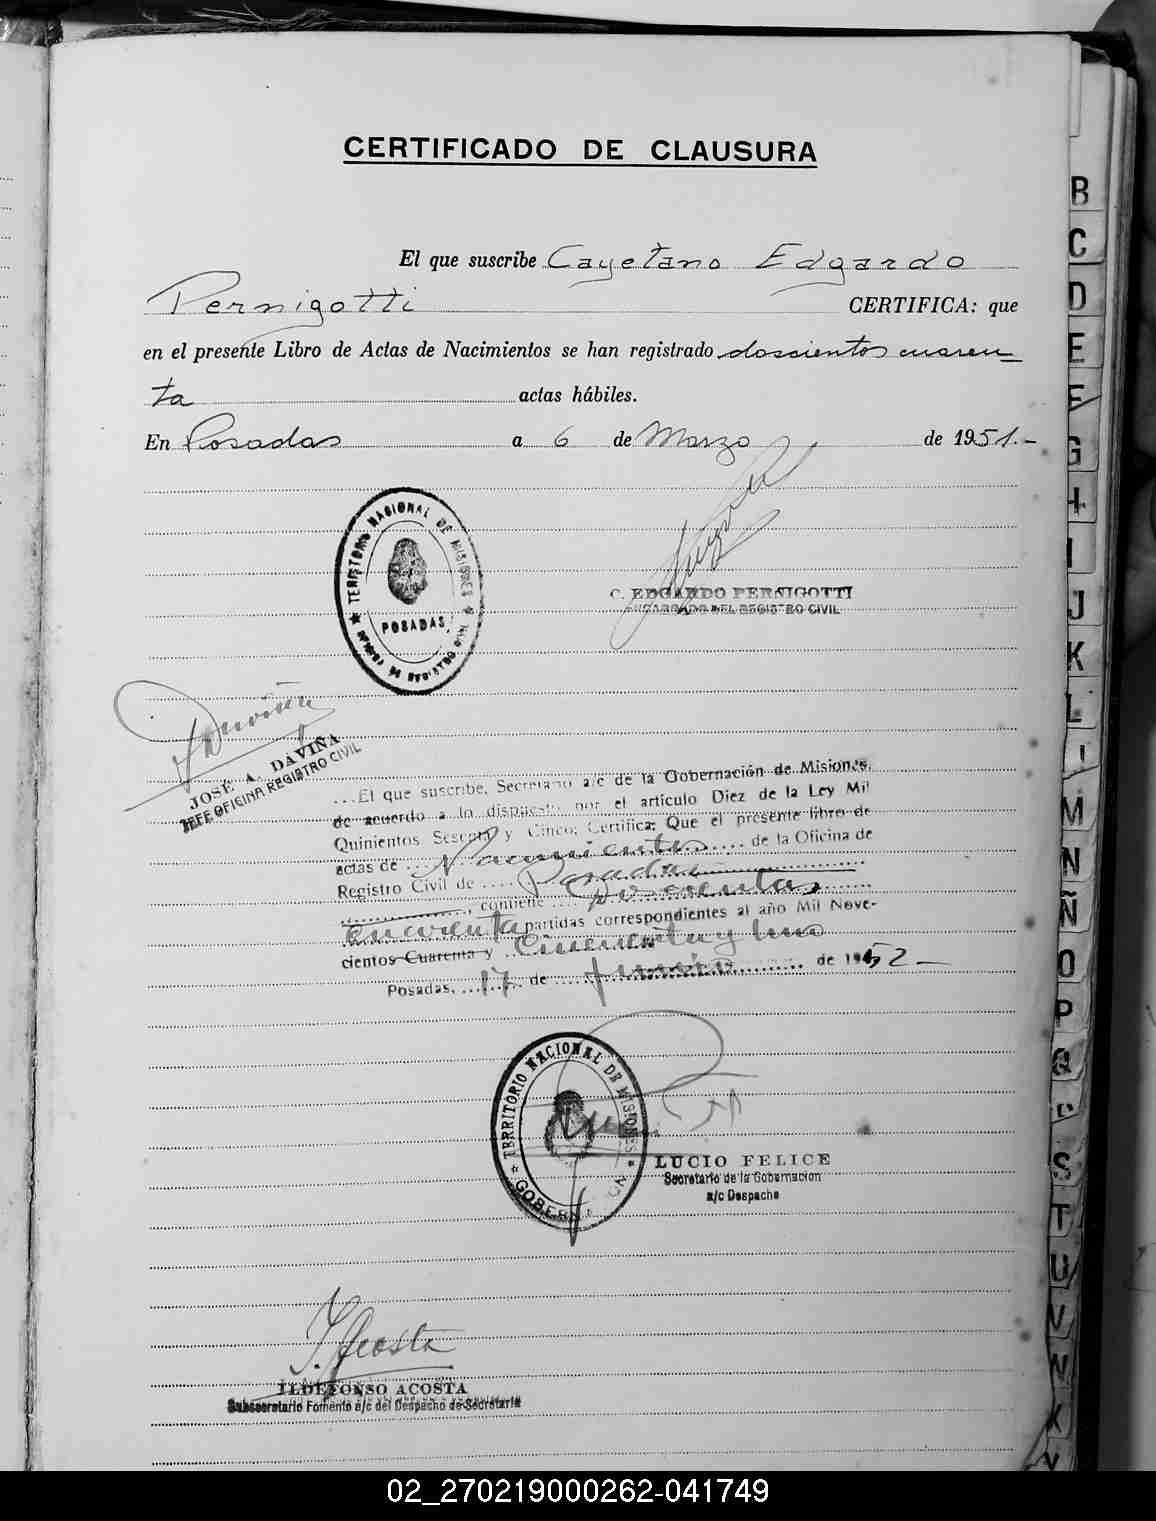 CERTIFICADO DE CLAUSURA
El que suscribe Cayetano Edgardo
Pernigotti CERTIFICA: que
en el presente Libro de Actas de Nacimientos se han registrado doscientos cuaren
ta actas hábiles.
En Posadas a 6 de Marzo de 1951.-
TERRITORIO NACIONAL DE MISIONES
OFICINA DE REGISTRO CIVIL
POSADAS
C. EDGARDO PERNIGOTTI
ENCARGADO DEL REGISTRO CIVIL
JOSÉ A. DAVIÑA
JEFE OFICINA REGISTRO CIVIL
...El que suscribe, Secretario a/c de la Gobernación de Misiones,
de acuerdo a lo dispuesto por el artículo Diez de la Ley Mil
Quinientos Sesenta y Cinco; Certifica: Que el presente libro de
actas de Nacimientos de la Oficina de
Registro Civil de Posadas
, contiene Doscientas
cuarenta partidas correspondientes al año Mil Nove-
cientos Cuarenta y Cincuenta y Uno
Posadas, 17 de Junio de 1952-
TERRITORIO NACIONAL DE MISIONES
GOBERNACION
LUCIO FELICE
Secretario de la Gobernacion
a/c Despacho
I. Acosta
ILDEFONSO ACOSTA
Subsecretario Fomento a/c del Despacho de Secretaria
B
C
D
E
F
G
H
I
J
K
L
M
N
Ñ
O
P
Q
S
T
U
V
W
X
Y
02_270219000262-041749